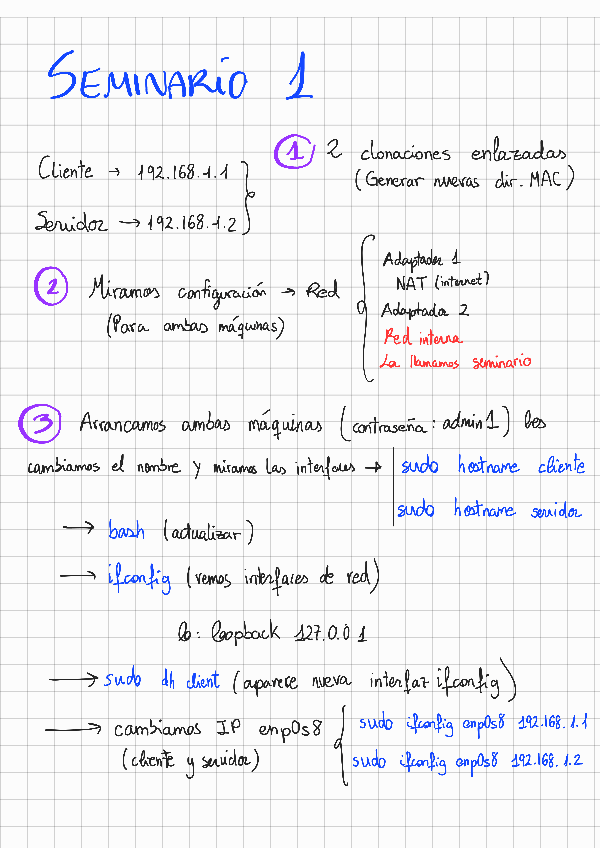 SEMINARIO 1
Cliente → 192.168.1.1
Servidor → 192.168.1.2
1 2 clonaciones enlazadas
(Generar nuevas dir. MAC)
2 Miramos configuración → Red
(Para ambas máquinas)
Adaptador 1
NAT (internet)
Adaptador 2
Red interna
La llamamos seminario
3 Arrancamos ambas máquinas (contraseña: admin1) les
cambiamos el nombre y miramos las interfaces →
sudo hostname cliente
sudo hostname servidor
→ bash (actualizar)
→ ifconfig (vemos interfaces de red)
lo: loopback 127.0.0 1
→ sudo dh client (aparece nueva interfaz ifconfig)
→ cambiamos IP enp0s8
(cliente y servidor)
sudo ifconfig enp0s8 192.168.1.1
sudo ifconfig enp0s8 192.168.1.2